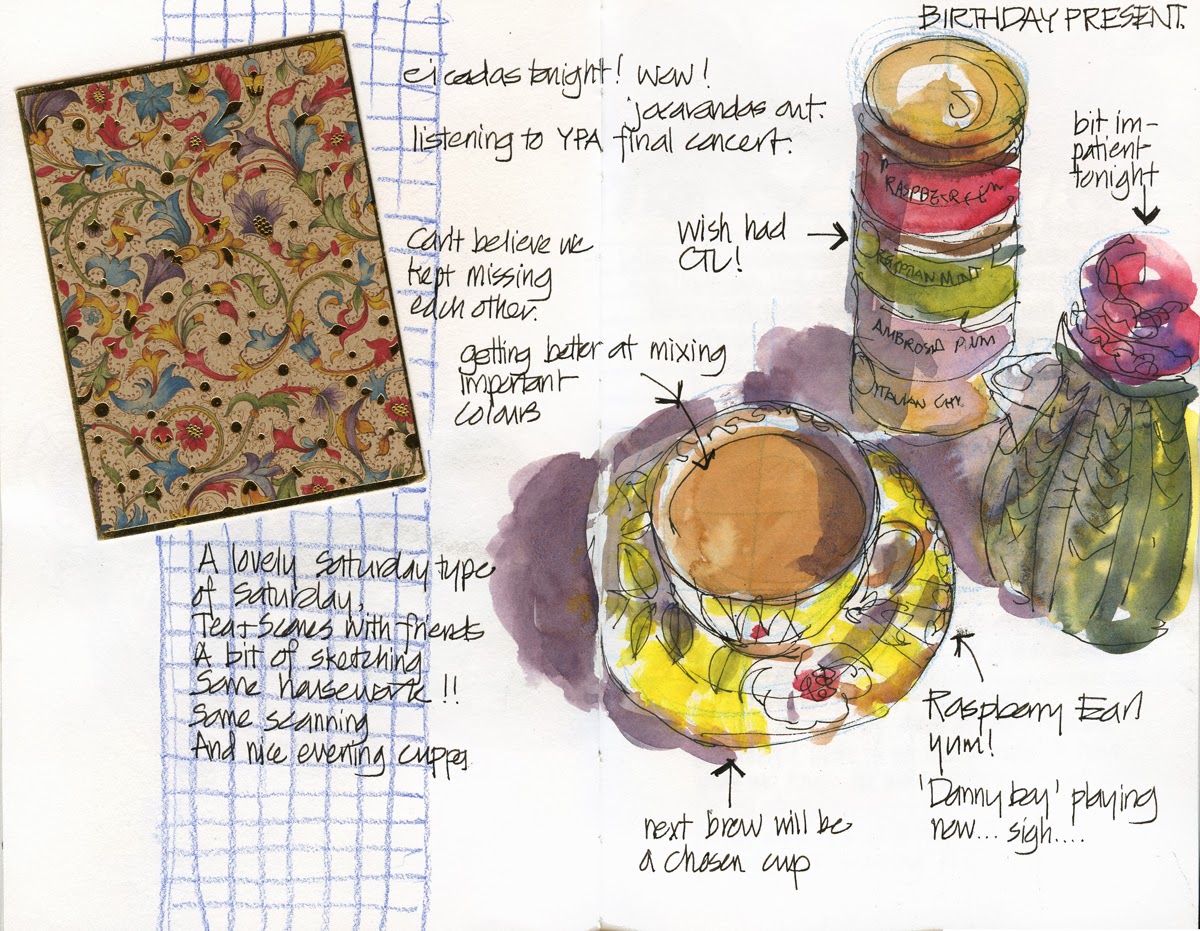 BIRTHDAY PRESENT.
cicadas tonight! wow!
jacarandas out.
listening to YPA final concert.
bit im-
patient
tonight
wish had
CTL!
Can't believe we
kept missing
each other.
getting better at mixing
important
colours
RASPBERRY
EGYPTIAN MINT
AMBROSIA PLUM
ITALIAN
A lovely Saturday type
of Saturday,
Tea + Scones with friends
A bit of sketching
Some housework!!
Some scanning
And nice evening cuppa
Raspberry Earl
yum!
'Danny boy' playing
now... sigh....
next brew will be
a chosen cup